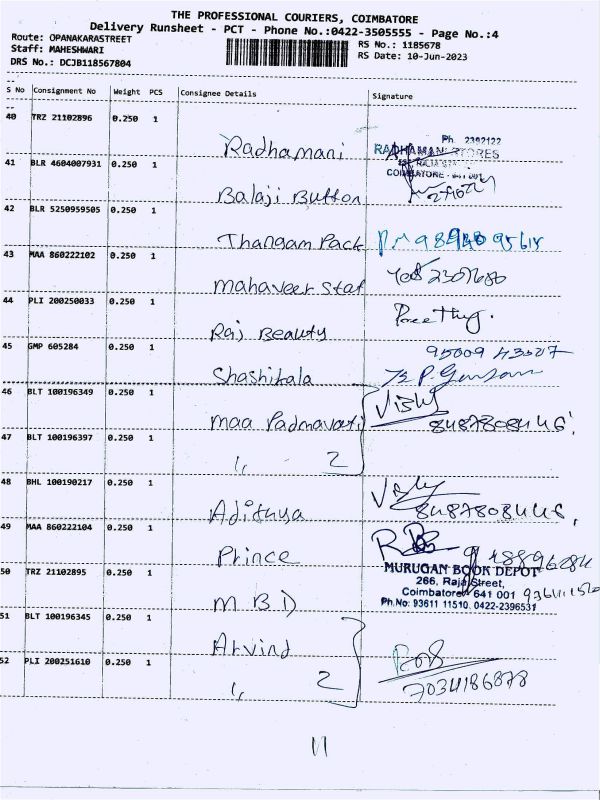 THE PROFESSIONAL COURIERS, COIMBATORE
Delivery Runsheet - PCT - Phone No.:0422-3505555 - Page No.:4
Route: OPANAKARASTREET
Staff: MAHESHWARI
DRS No.: DCJB118567804
RS No.: 1185678
RS Date: 10-Jun-2023
S No Consignment No Weight PCS Consignee Details Signature
40 TRZ 21102896 0.250 1
Radhamani
Ph 2392122
RADHAMANI STORES
COIMBATORE - 641 001
41 BLR 4604007931 0.250 1
Balaji Button
42 BLR 5250959505 0.250 1
Thangam Pack
43 MAA 860222102 0.250 1
Mahaveer Staf
44 PLI 200250033 0.250 1
Raj Beauty
45 GMP 605284 0.250 1
Shashikala
46 BLT 100196349 0.250 1
Maa Padmavati
8487808446
47 BLT 100196397 0.250 1
" 2
48 BHL 100190217 0.250 1
Adithya
8487808446
49 MAA 860222104 0.250 1
Prince
50 TRZ 21102895 0.250 1
MBD
MURUGAN BOOK DEPOT
266, Raja Street,
Coimbatore 641 001
Ph.No: 93611 11510, 0422-2396531
51 BLT 100196345 0.250 1
Arvind
52 PLI 200251610 0.250 1
" 2
7034186878